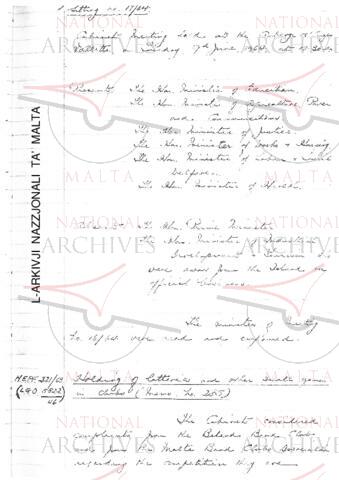 Sitting no. 17/64.
Cabinet Meeting held at the
Valletta on 17th June, 1964, at
Present: The Hon. Minister of Education.
The Hon. Minister of Agriculture, Power
and Communications
The Hon. Minister of Justice.
The Hon. Minister of Works & Housing
The Hon. Minister of Labour & Social
Welfare.
The Hon. Minister of Health.
Absent: The Hon. Prime Minister
The Hon. Minister of
Development & Tourism who
were away from the Island on
official business.
The minutes of Sitting
No. 16/64 were read and confirmed.
Holding of Lotteries and other similar games
in Clubs (Memo. No.
The Cabinet considered
complaints from the Band Clubs
and from the Malta Band Clubs Association
regarding the competition
L-ARKIVJI NAZZJONALI TA' MALTA
NATIONAL
ARCHIVES
MALTA